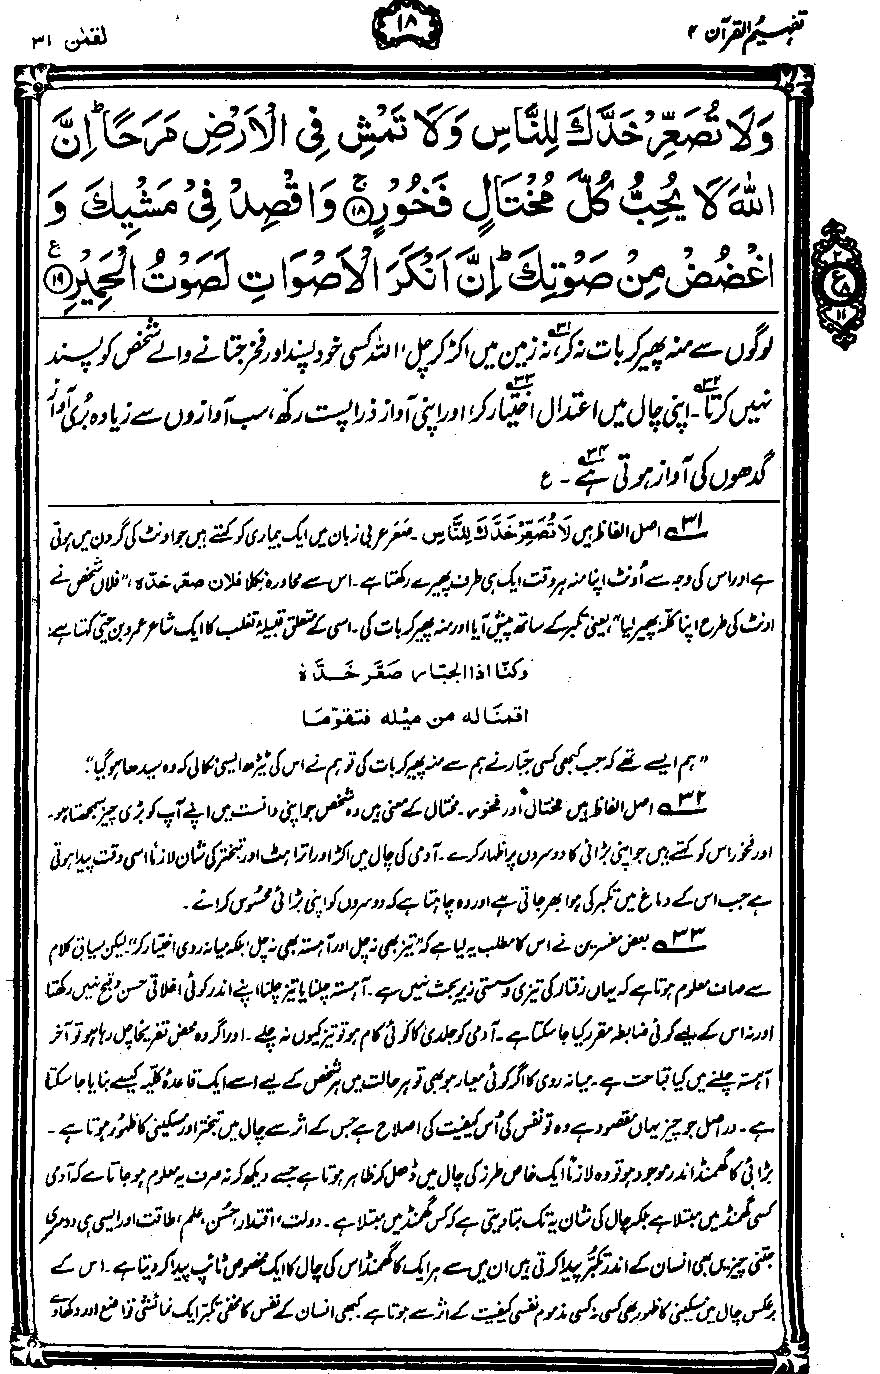 تفہیم القرآن ۴
۱۸
لقمٰن ۳۱
وَلَا تُصَعِّرْ خَدَّكَ لِلنَّاسِ وَلَا تَمْشِ فِي الْاَرْضِ مَرَحًا ؕ اِنَّ
اللّٰهَ لَا يُحِبُّ كُلَّ مُخْتَالٍ فَخُوْرٍ ۚ ﴿۱۸﴾ وَاقْصِدْ فِيْ مَشْيِكَ وَ
اغْضُضْ مِنْ صَوْتِكَ ؕ اِنَّ اَنْكَرَ الْاَصْوَاتِ لَصَوْتُ الْحَمِيْرِ ﴿۱۹﴾ ع
۲
ع
۸
۱۱
لوگوں سے منہ پھیر کر بات نہ کر،۳۱ نہ زمین میں اکڑ کر چل، اللہ کسی خود پسند اور فخر جتانے والے شخص کو پسند
نہیں کرتا۳۲۔ اپنی چال میں اعتدال اختیار کر۳۳، اور اپنی آواز ذرا پست رکھ، سب آوازوں سے زیادہ بُری آواز
گدھوں کی آواز ہوتی ہے۳۴۔ ع
۳۱ اصل الفاظ ہیں لَا تُصَعِّرْ خَدَّكَ لِلنَّاسِ۔ صَعَر عربی زبان میں ایک بیماری کو کہتے ہیں جو اونٹ کی گردن میں ہوتی
ہے اور اس کی وجہ سے اُونٹ اپنا منہ ہر وقت ایک ہی طرف پھیرے رکھتا ہے۔ اس سے محاورہ نکلا فلان صعّر خدّہ، "فلاں شخص نے
اونٹ کی طرح اپنا کلہ پھیر لیا" یعنی تکبر کے ساتھ پیش آیا اور منہ پھیر کر بات کی۔ اسی کے متعلق قبیلۂ تغلب کا ایک شاعر عمرو بن حُیّ کہتا ہے:
وكنّا اذا الجبّار صَعَّر خَدَّهٗ
اقمنا له من ميله فتقوّما
"ہم ایسے تھے کہ جب کبھی کسی جبّار نے ہم سے منہ پھیر کر بات کی تو ہم نے اس کی ٹیڑھ ایسی نکالی کہ وہ سیدھا ہو گیا"۔
۳۲ اصل الفاظ ہیں مختال اور فخور۔ مختال کے معنی ہیں وہ شخص جو اپنی دانست میں اپنے آپ کو بڑی چیز سمجھتا ہو۔
اور فخور اس کو کہتے ہیں جو اپنی بڑائی کا دوسروں پر اظہار کرے۔ آدمی کی چال میں اکڑ اور اتراہٹ اور تبختر کی شان لازمًا اسی وقت پیدا ہوتی
ہے جب اس کے دماغ میں تکبر کی ہوا بھر جاتی ہے اور وہ چاہتا ہے کہ دوسروں کو اپنی بڑائی محسُوس کرائے۔
۳۳ بعض مفسرین نے اس کا مطلب یہ لیا ہے کہ "تیز بھی نہ چل اور آہستہ بھی نہ چل، بلکہ میانہ روی اختیار کر"، لیکن سیاقِ کلام
سے صاف معلوم ہوتا ہے کہ یہاں رفتار کی تیزی و سستی زیرِ بحث نہیں ہے۔ آہستہ چلنا یا تیز چلنا اپنے اندر کوئی اخلاقی حسن و قبح نہیں رکھتا
اور نہ اس کے لیے کوئی ضابطہ مقرر کیا جا سکتا ہے۔ آدمی کو جلدی کا کوئی کام ہو تو تیز کیوں نہ چلے۔ اور اگر وہ محض تفریحًا چل رہا ہو تو آخر
آہستہ چلنے میں کیا قباحت ہے۔ میانہ روی کا اگر کوئی معیار ہو بھی تو ہر حالت میں ہر شخص کے لیے اسے ایک قاعدۂ کلیّہ کیسے بنایا جا سکتا
ہے۔ دراصل جو چیز یہاں مقصود ہے وہ تو نفس کی اُس کیفیت کی اصلاح ہے جس کے اثر سے چال میں تبختر اور مسکینی کا ظہُور ہوتا ہے۔
بڑائی کا گھمنڈ اندر موجود ہو تو وہ لازمًا ایک خاص طرز کی چال میں ڈھل کر ظاہر ہوتا ہے جسے دیکھ کر نہ صرف یہ معلوم ہو جاتا ہے کہ آدمی
کسی گھمنڈ میں مبتلا ہے بلکہ چال کی شان یہ تک بتا دیتی ہے کہ کس گھمنڈ میں مبتلا ہے۔ دولت، اقتدار، حُسن، علم، طاقت اور ایسی ہی دوسری
جتنی چیزیں بھی انسان کے اندر تکبُّر پیدا کرتی ہیں ان میں سے ہر ایک کا گھمنڈ اس کی چال کا ایک مخصوص ٹائپ پیدا کر دیتا ہے۔ اس کے
برعکس چال میں مسکینی کا ظہور بھی کسی نہ کسی مذموم نفسی کیفیت کے اثر سے ہوتا ہے۔ کبھی انسان کے نفس کا مخفی تکبّر ایک نمائشی تواضع اور دکھاوے